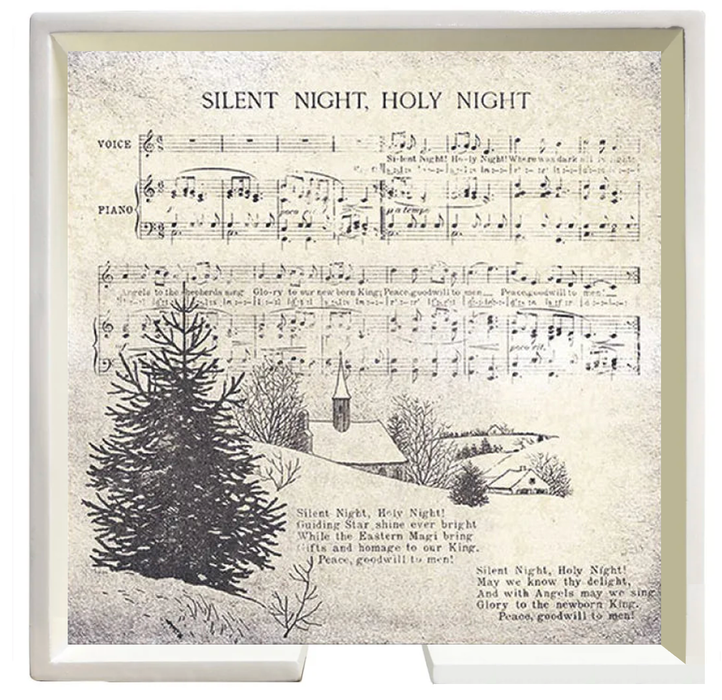 SILENT NIGHT, HOLY NIGHT
VOICE
Silent Night! Ho-ly Night! Where was dark all is light:
PIANO
poco
a tempo
Angels to the shepherds sing Glo-ry to our new born King; Peace, goodwill to men Peace, goodwill to men!
poco rit.
Silent Night, Holy Night!
Guiding Star shine ever bright
While the Eastern Magi bring
Gifts and homage to our King.
Peace, goodwill to men!
Silent Night, Holy Night!
May we know thy delight,
And with Angels may we sing
Glory to the newborn King.
Peace, goodwill to men!